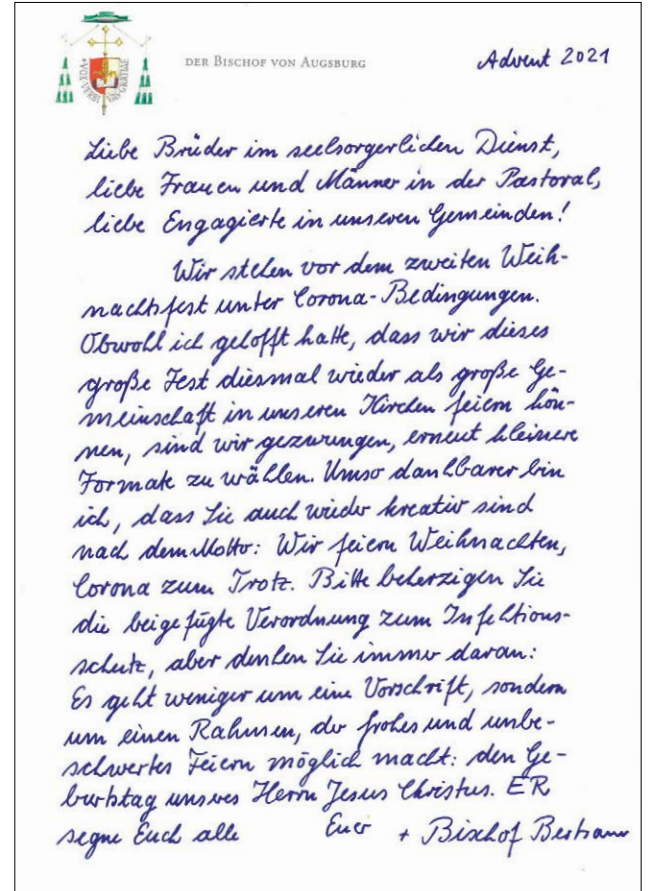 VOX VERBI VAS GRATIAE
DER BISCHOF VON AUGSBURG
Advent 2021
Liebe Brüder im seelsorgerlichen Dienst,
liebe Frauen und Männer in der Pastoral,
liebe Engagierte in unseren Gemeinden!
Wir stehen vor dem zweiten Weih-
nachtsfest unter Corona-Bedingungen.
Obwohl ich gehofft hatte, dass wir dieses
große Fest diesmal wieder als große Ge-
meinschaft in unseren Kirchen feiern kön-
nen, sind wir gezwungen, erneut kleinere
Formate zu wählen. Umso dankbarer bin
ich, dass Sie auch wieder kreativ sind
nach dem Motto: Wir feiern Weihnachten,
Corona zum Trotz. Bitte beherzigen Sie
die beigefügte Verordnung zum Infektions-
schutz, aber denken Sie immer daran:
Es geht weniger um eine Vorschrift, sondern
um einen Rahmen, der frohes und unbe-
schwertes Feiern möglich macht: den Ge-
burtstag unseres Herrn Jesus Christus. ER
segne Euch alle Euer + Bischof Bertram